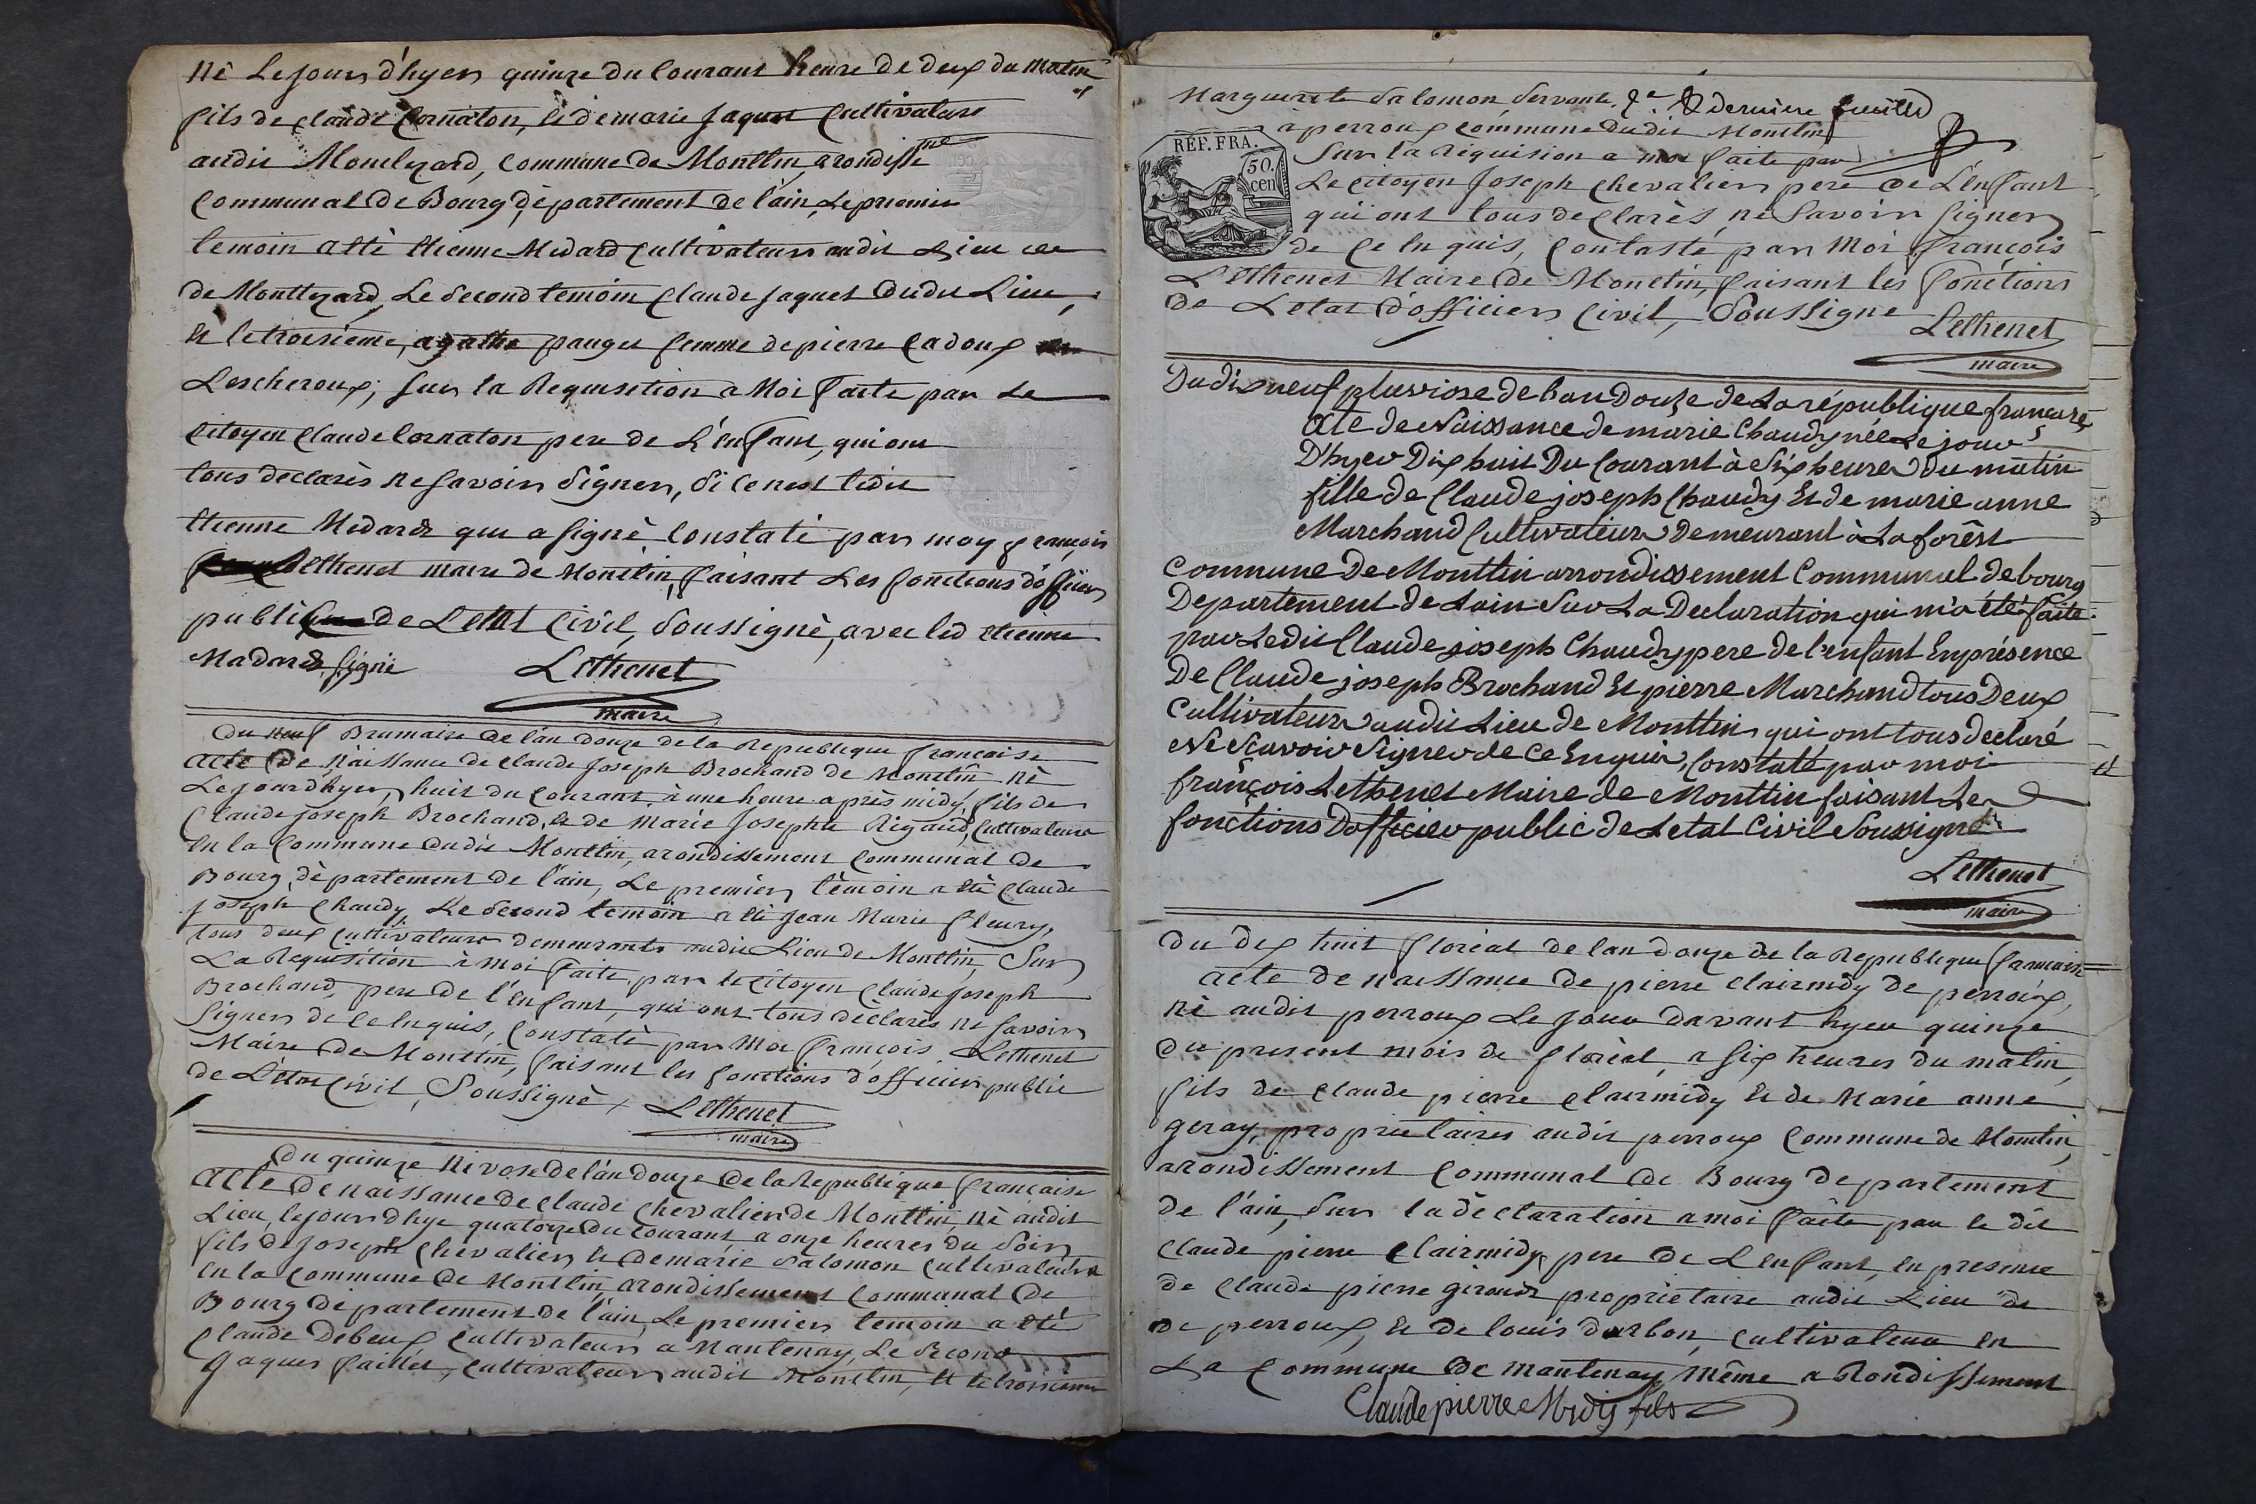 né Le jour d'hyer quinze du Courant heure de deux du matin
fils de claude Cornaton, et de marie jaquet Cultivateurs
audit Montezard, commune de Montlin, arondissme
Communal de Bourg, département de l'ain, Le premier
temoin a étè Etienne Medard Cultivateur audit Lieu de
de Montezard, Le Second temoin Claude jaquet dudit Lieu,
Et le troisième, agathe pauget femme de pierre Cadoux
Lescheroux; Sur la Requisition a Moi faite par Le
Citoyen Claude Cornaton pere de L'enfant, qui ont
tous declarès ne savoir Signer, Si ce n'est ledit
Etienne Medard qui a signè Constatè par moy françois
Lethenet maire de Montlin, faisant Les fonctions d'officier
public de L'état Civil, Soussignè, avec led Etienne
Madard Signé Lethenet
maire
Du neuf Brumaire de l'an douze de la Republique francaise
Acte De Naissance de Claude Joseph Brochand de Montlin Nè
Le jour d'hyer, huit du Courant à une heure après midy, fils de
Claude joseph Brochand, et de Marie Josephte Rigaud, Cultivateurs
En la Commune dudit Montlin, arondissement Communal de
Bourg, département de l'ain, Le premier tèmoin a etè Claude
joseph Chaudy, Le Second temoin a étè Jean Marie fleury,
tous deux Cultivateurs demeurants audit Lieu de Montlin, Sur
La Requisition à Moi faite par le Citoyen Claude joseph
Brochand, pere de l'Enfant, qui ont tous dèclarès ne savoir
Signer de ce Enquis, Constatè par Moi françois Lethenet
Maire de Montlin, faisant les fonctions d'officier public
de L'état Civil, Soussignè Lethenet
maire
Du quinze Nivose de l'an douze de la Republique francaise
Acte De naissance de Claude Chevalier de Montlin, Nè audit
Lieu, le jour d'hye quatorze du Courant a onze heures du Soir
fils de Joseph Chevalier et de marie Salomon Cultivateurs
En la Commune de Montlin, arondissement Communal de
Bourg département de l'ain, Le premier temoin a été
Claude Debeuf Cultivateur a Mantenay, Le Second
Jaques faillet, Cultivateur audit Montlin, Et le troisieme
Marguerite Salomon Servante 2e & derniere feuille
a perroux commune dudit Montlin
RÉP. FRA.
50. cen
Sur la Requision a moi faite par
Le Citoyen Joseph Chevalier pere de L'enfant
qui ont tous declarès, ne Savoir Signer
de Ce Enquis, Contasté par Moi françois
Lethenet Maire de Montlin, faisant les fonctions
de L'etat d'officier Civil, Soussigne Lethenet
maire
Du dix neuf pluviose de l'an Douze de La république francaise
Acte de Naissance de marie Chaudy née Le jour
D'hyer Dix huit Du Courant à Six heures du matin
fille de Claude joseph Chaudy Et de marie anne
Marchand Cultivateurs Demeurant à La forêst
Commune De Montlin arrondissement Communal de bourg
Departement de Lain Sur La Declaration qui m'a été faite
par Ledit Claude joseph Chaudy pere de l'enfant En présence
De Claude joseph Brochand Et pierre Marchand tous Deux
Cultivateurs audit Lieu de Montlin qui ont tous declaré
Ne Scavoir Signer de Ce Enquis, Constaté par moi
françois Lethenet Maire de Montlin faisant Les
fonctions Dofficier public de Letat Civil Soussigné
Lethenet
maire
Du dix huit floréal de lan douze de la Republique francaise
Acte de naissance de pierre Clairmidy de perroux,
nè audit perroux Le jour davant hyeu quinze
du present mois de floréal, a six heures du matin,
fils de Claude pierre Clairmidy Et de Marie anne
geray, proprietaires audit perroux Commune de Montlin,
arondissement Communal de Bourg departement
de l'ain, Sur la dèclaration a moi faite par le dit
Claude pierre Clairmidy, pere de L'enfant, en presence
de Claude pierre giroud propriètaire audit Lieu de
de perroux, Et de Louis darbon, cultivateur en
La Commune de Mantenay Même arondissement
Claude pierre Midy fils